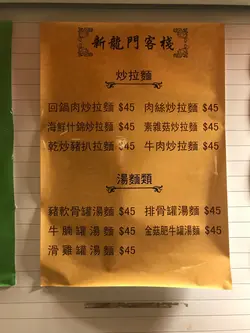 新龍門客棧
炒拉麵
回鍋肉炒拉麵 $45 肉絲炒拉麵 $45
海鮮什錦炒拉麵 $45 素雜菇炒拉麵 $45
乾炒豬扒拉麵 $45 牛肉炒拉麵 $45
湯麵類
豬軟骨罐湯麵 $45 排骨罐湯麵 $45
牛腩罐湯麵 $45 金菇肥牛罐湯麵 $45
滑雞罐湯麵 $45